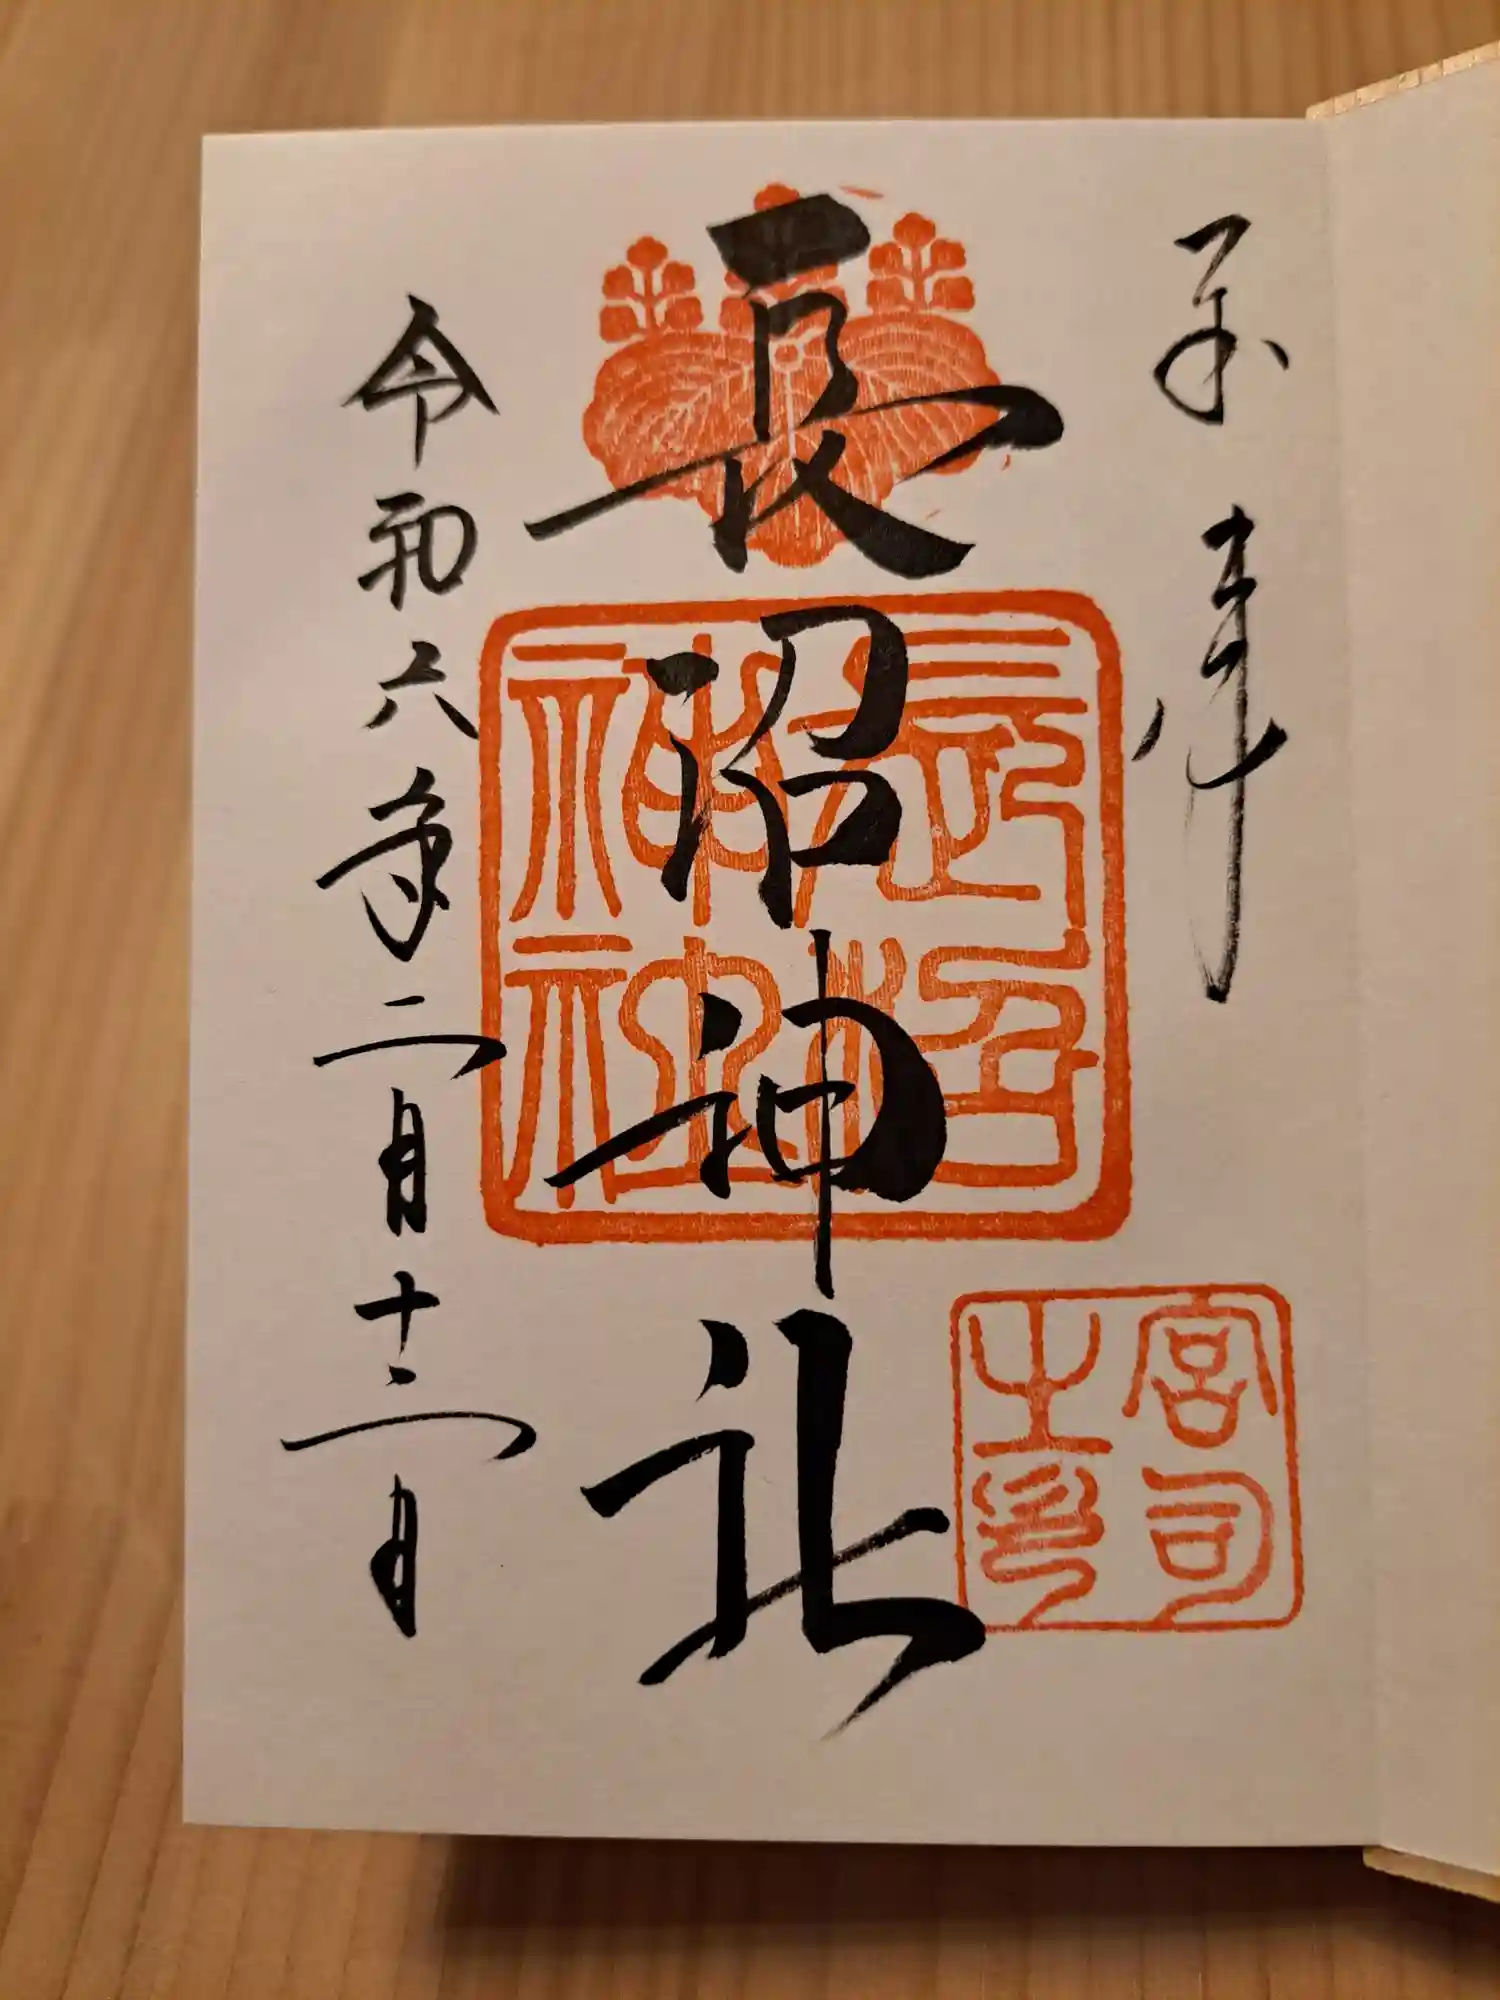 奉拝
長沼神社
長沼
神社
宮司
之印
令和六年二月十二日